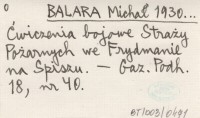 0
BALARA Michał 1930...
Ćwiczenia bojowe Straży
Pożarnych we Frydmanie
na Spiszu. — Gaz. Podh.
18, nr 40.
BT/003/0491